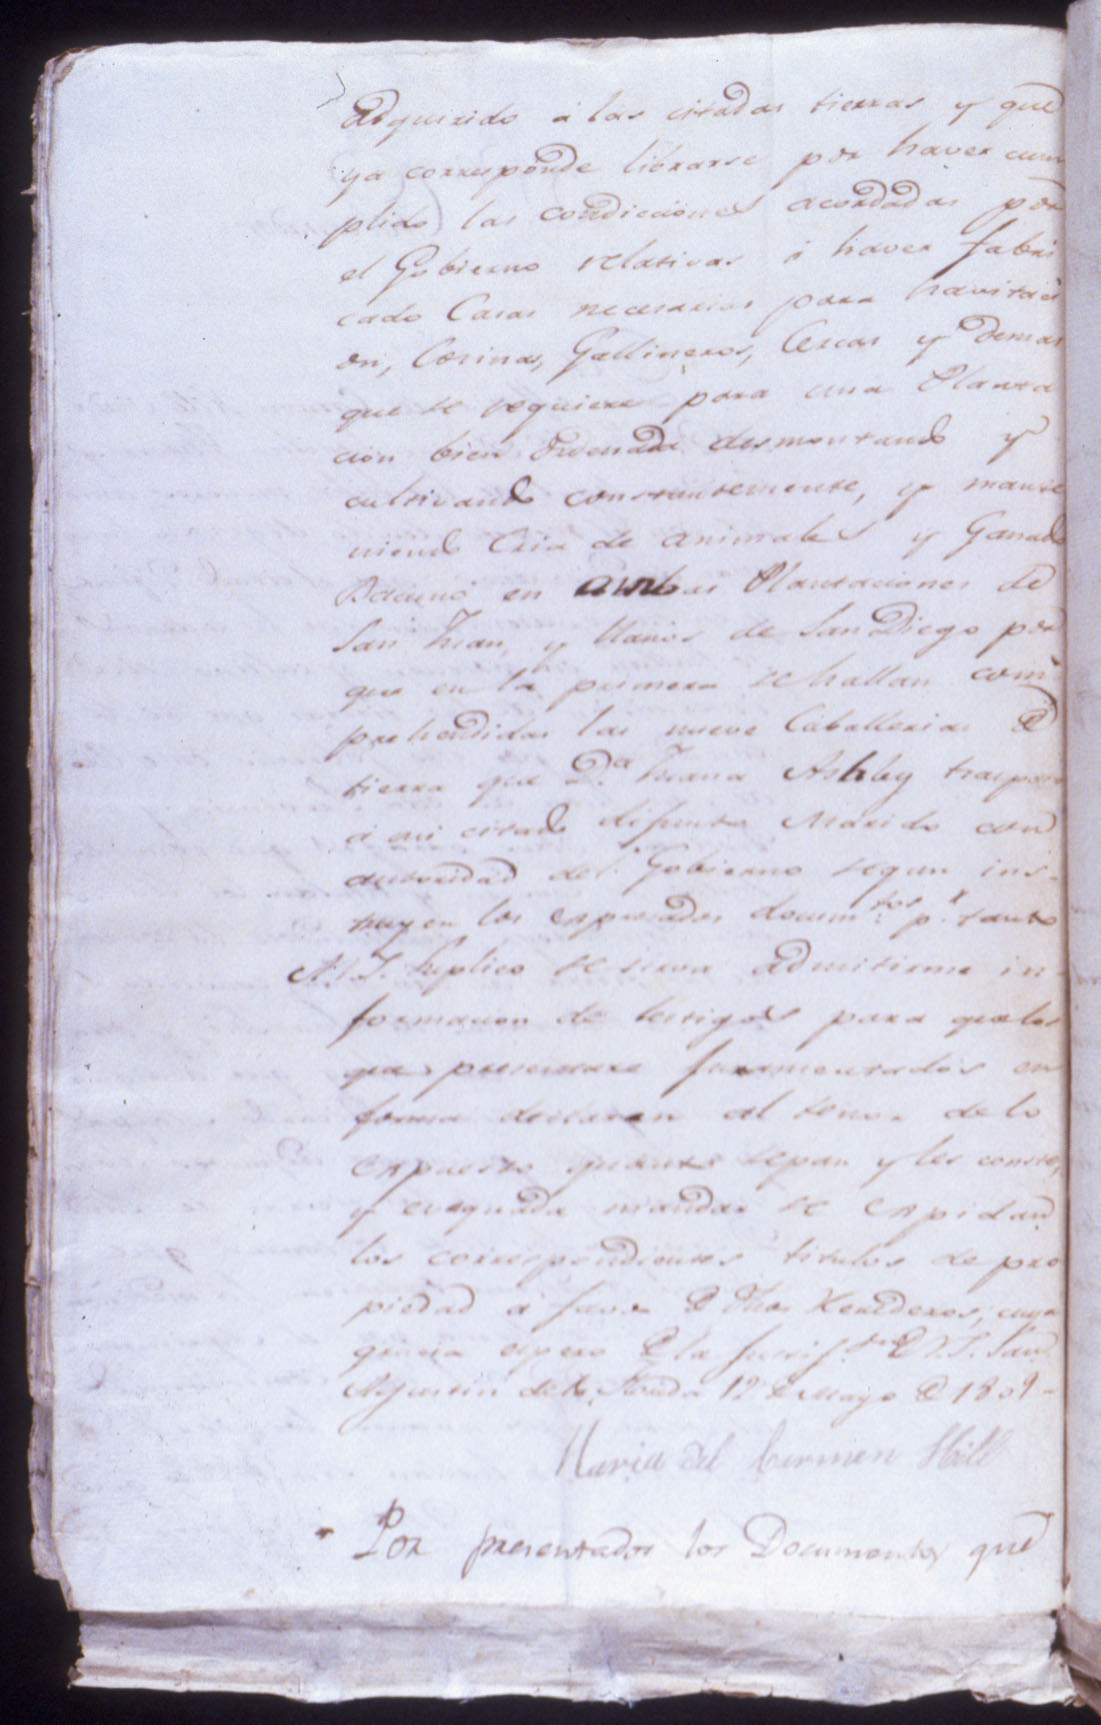 adquirido á las citadas tierras y que
ya corresponde librarse por haver cum
plido las condicciones acordadas por
el Gobierno relativas á haver fabri
cado Casas necesarias para havitaci
on, Cosinas, Gallineros, Cercas y demas
que se requiere para una Planta
cion bien ordenada desmontando y
cultivando constantemente, y mante
niendo Cria de animales y Ganado
Bacuno en ambas Plantaciones de
San Juan, y llanos de San Diego por
que en la primera se hallan com
prehendidas las nueve Caballerias de
tierra que D.ª Juana Ashley traspaso
á mi citado difunto Marido con
autoridad del Gobierno segun ins-
truyen los expresados docum.tos p.r tanto
A.V.S. Suplico se sirva admitirme in
formacion de testigos para que los
que presentare juramentados en
forma declaren al tenor de lo
expuesto quanto sepan y les conste,
y evaquada mandar se expidan
los correspondientes titulos de pro
piedad a favor de dhos Herederos, cuya
gracia espero de la Justif.on de V.S. San
Agustin de la Florida 12 de Mayo de 1809 -
Maria del Carmen Hill
Por presentados los Documentos que